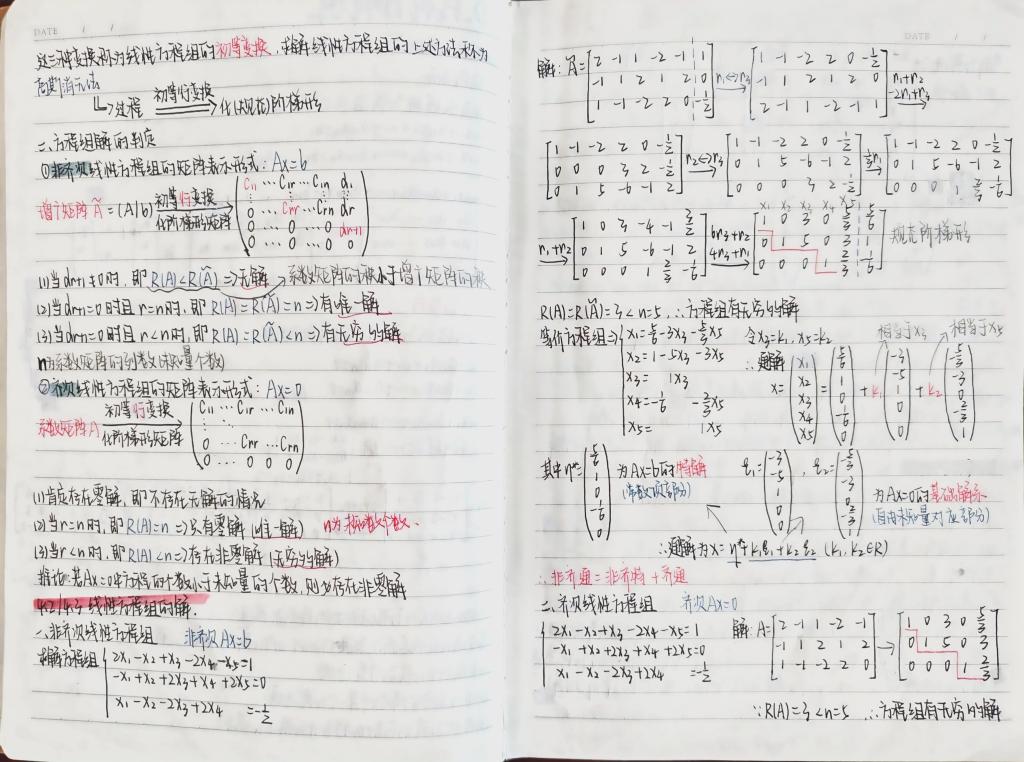 DATE / /
这三种变换称为线性方程组的初等变换，求解线性方程组的上述方法称为
高斯消元法
↳过程 初等行变换 ⟹ 化(规范)阶梯形
二、方程组解的判定
①非齐次线性方程组的矩阵表示形式：Ax=b
增广矩阵 Ã=(A/b) 初等行变换 化阶梯形矩阵
C11 … C1r … C1n d1
0 … Crr … Crn dr
0 … 0 … 0 dr+1
0 … 0 0 0
(1)当dr+1≠0时，即R(A)<R(Ã)⇒无解 → 系数矩阵的秩小于增广矩阵的秩
(2)当dr+1=0时且r=n时，即R(A)=R(Ã)=n⇒有唯一解
(3)当dr+1=0时且r<n时，即R(A)=R(Ã)<n⇒有无穷多解
n为系数矩阵的列数(未知量个数)
②齐次线性方程组的矩阵表示形式：Ax=0
系数矩阵A 初等行变换 化阶梯形矩阵
C11 … C1r … C1n
0 … Crr … Crn
0 … 0 0 0
(1)肯定存在零解，即不存在无解的情况
(2)当r=n时，即R(A)=n⇒只有零解(唯一解) n为未知数个数、
(3)当r<n时，即R(A)<n⇒存在非零解(无穷多解)
推论：若Ax=0中方程的个数小于未知量的个数，则必存在非零解
4.2/4.3 线性方程组的解
一、非齐次线性方程组 非齐次Ax=b
求解方程组
2x1-x2+x3-2x4-x5=1
-x1+x2+2x3+x4+2x5=0
x1-x2-2x3+2x4 =-1/2
DATE / /
解：Ã=
2 -1 1 -2 -1 1
-1 1 2 1 2 0
1 -1 -2 2 0 -1/2
r1↔r3
1 -1 -2 2 0 -1/2
-1 1 2 1 2 0
2 -1 1 -2 -1 1
r1+r2
-2r1+r3
1 -1 -2 2 0 -1/2
0 0 0 3 2 -1/2
0 1 5 -6 -1 2
r2↔r3
1 -1 -2 2 0 -1/2
0 1 5 -6 -1 2
0 0 0 3 2 -1/2
1 -1 -2 2 0 -1/2
0 1 5 -6 -1 2
0 0 0 1 2/3 -1/6
r1+r2
1 0 3 -4 -1 3/2
0 1 5 -6 -1 2
0 0 0 1 2/3 -1/6
6r3+r2
4r3+r1
x1 x2 x3 x4 x5
1 0 3 0 5/3 5/6
0 1 5 0 3 1
0 0 0 1 2/3 -1/6
规范阶梯形
R(A)=R(Ã)=3<n=5，∴方程组有无穷多解
等价方程组⇒
x1=5/6-3x3-5/3x5
x2=1-5x3-3x5
x3= 1x3
x4=-1/6 -2/3x5
x5= 1x5
令x3=k1，x5=k2
相当于x3 相当于x5
∴通解
x=(x1 x2 x3 x4 x5)=(5/6 1 0 -1/6 0)+k1(-3 -5 1 0 0)+k2(-5/3 -3 0 -2/3 1)
其中η*=(5/6 1 0 -1/6 0) 为Ax=b的特解
(常数项部分)
ξ1=(-3 -5 1 0 0)，ξ2=(-5/3 -3 0 -2/3 1)
为Ax=0的基础解系
(自由未知量对应部分)
∴通解为x=η*+k1ξ1+k2ξ2 (k1,k2∈R)
∴非齐通=非齐特+齐通
二、齐次线性方程组 齐次Ax=0
2x1-x2+x3-2x4-x5=1
-x1+x2+2x3+x4+2x5=0
x1-x2-2x3+2x4 =-1/2
解：A=
2 -1 1 -2 -1
-1 1 2 1 2
1 -1 -2 2 0
→
1 0 3 0 5/3
0 1 5 0 3
0 0 0 1 2/3
∵R(A)=3<n=5 ∴方程组有无穷多解